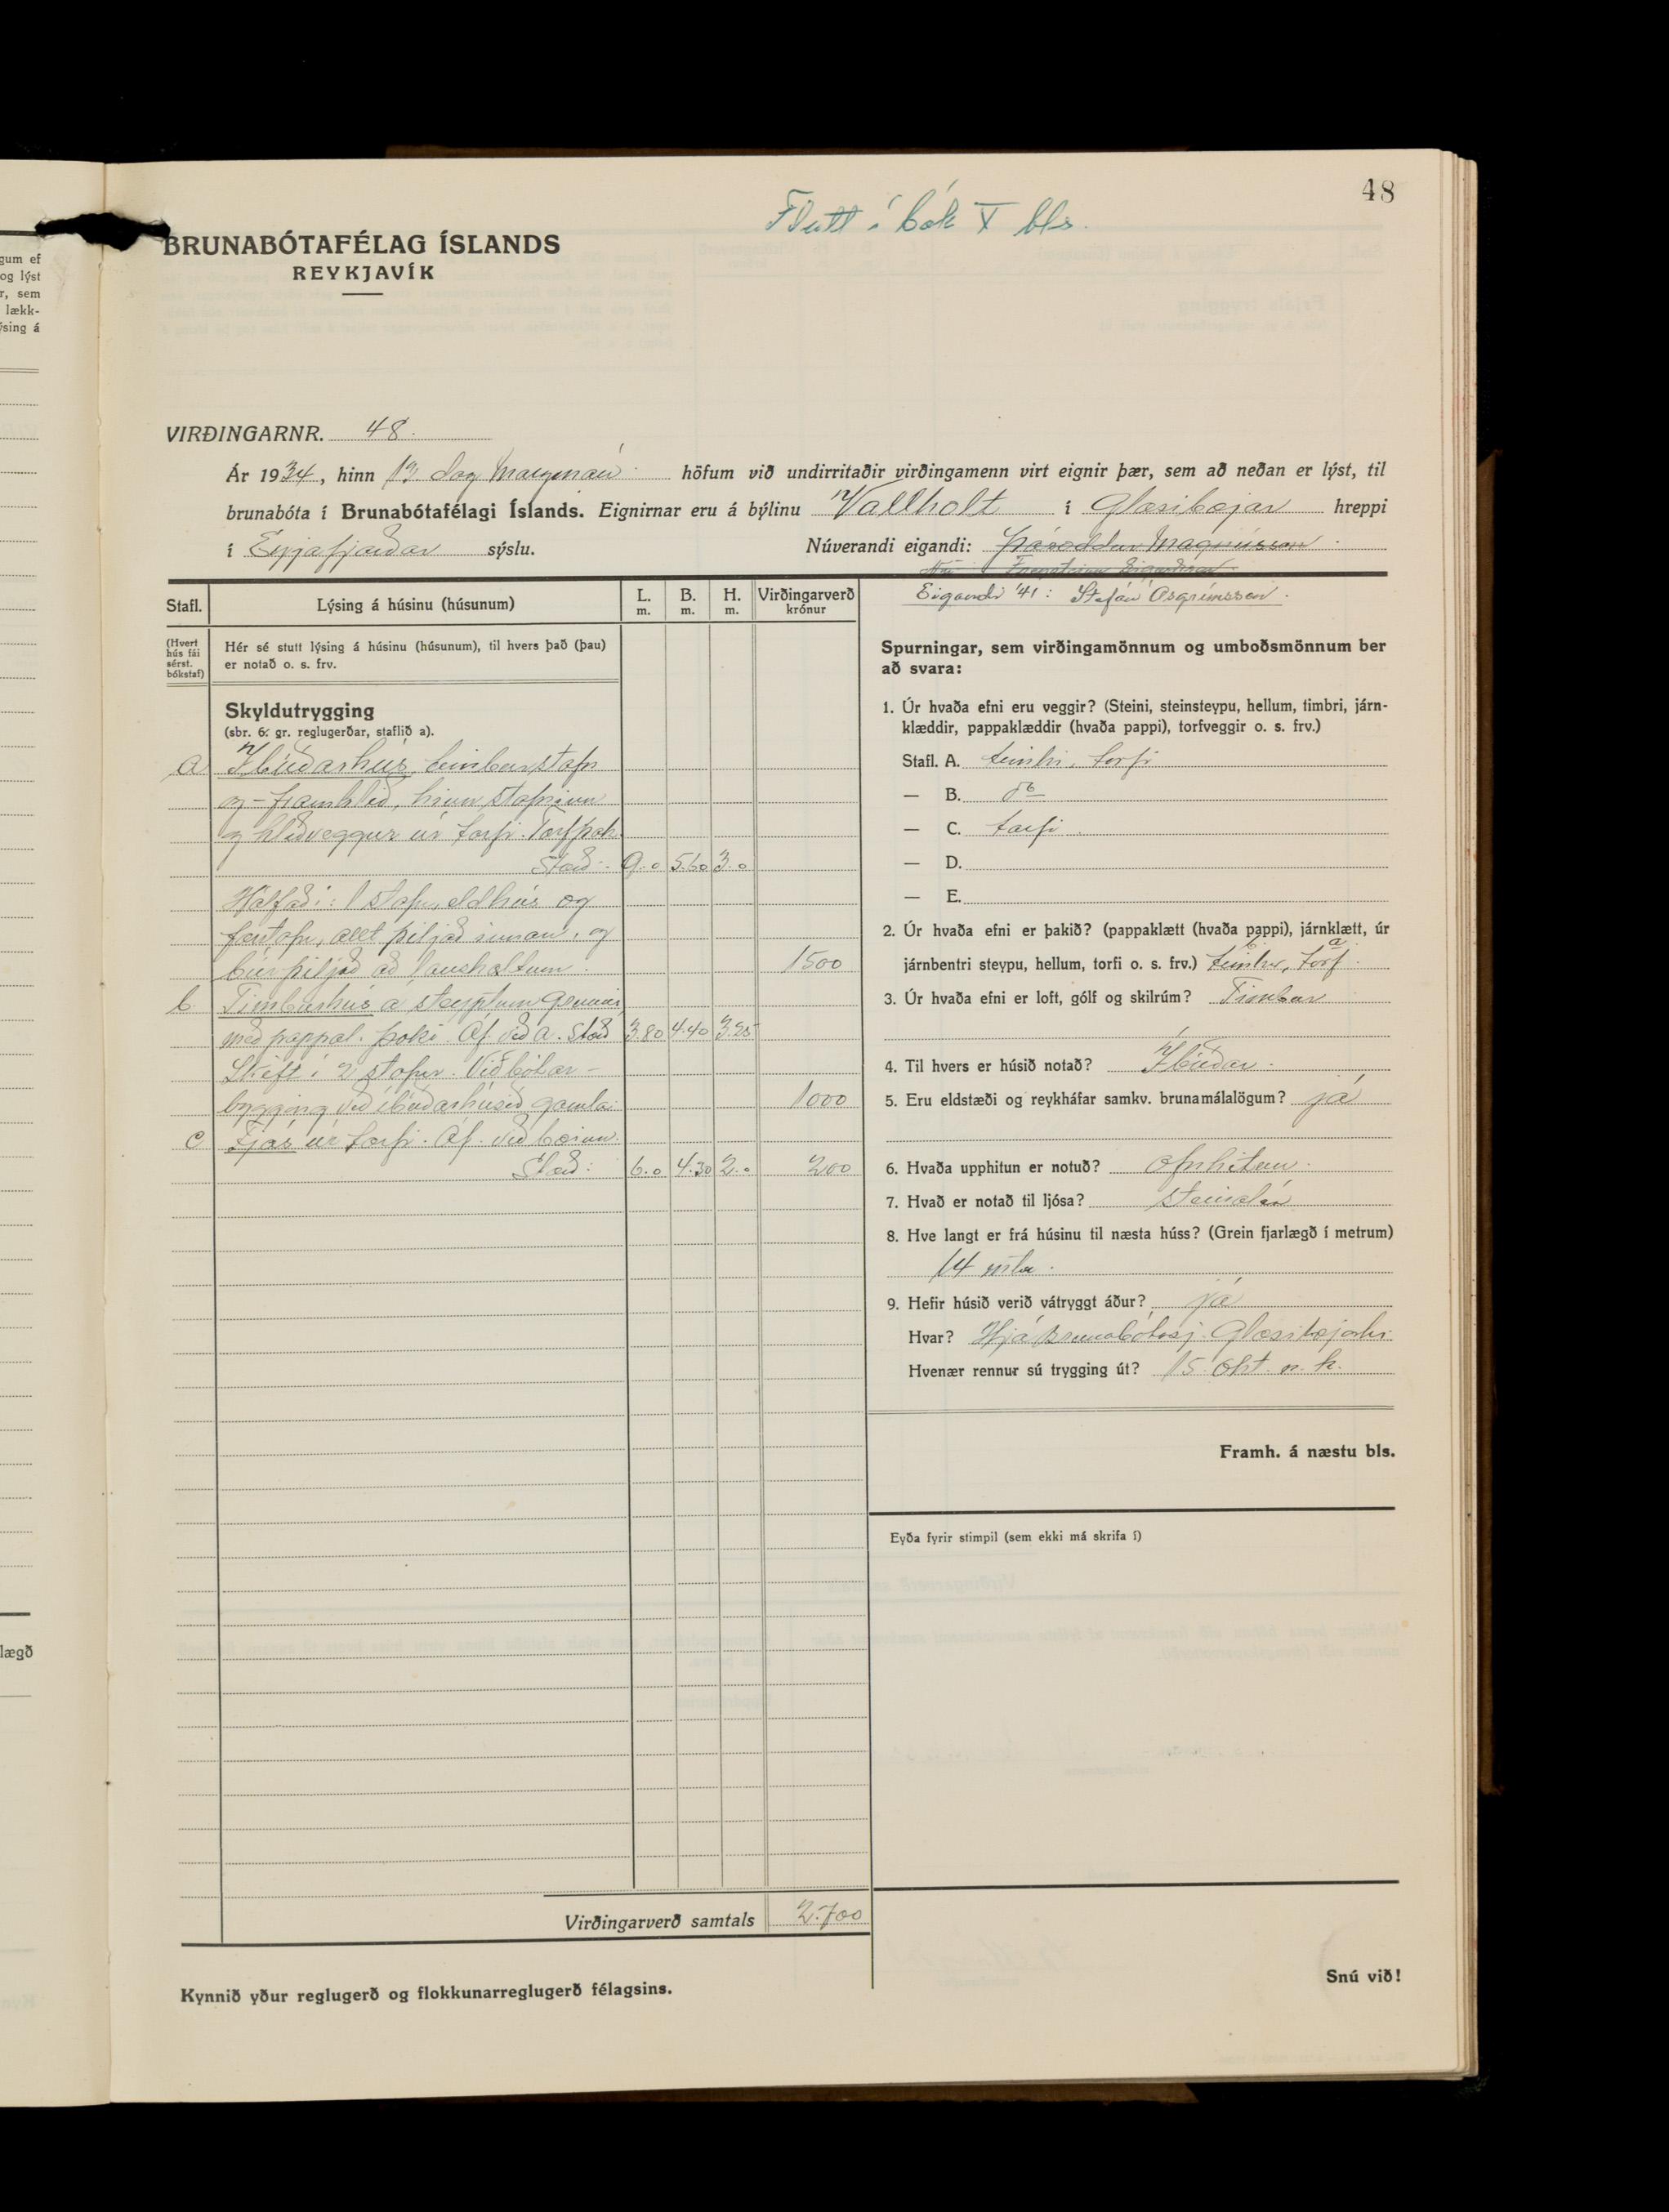 48
Flutt í bók V bls.
BRUNABÓTAFÉLAG ÍSLANDS
REYKJAVÍK
gum ef
og lýst
r, sem
lækk-
ýsing á
VIRÐINGARNR. 48.
Ár 1934, hinn 13. dag höfum við undirritaðir virðingamenn virt eignir þær, sem að neðan er lýst, til
brunabóta í Brunabótafélagi Íslands. Eignirnar eru á býlinu Vallholt í Glæsibæjar hreppi
í Eyjafjarðar sýslu. Núverandi eigandi: Þóroddur Magnússon
Eigandi '41: Stefán Ásgrímsson.
Stafl. Lýsing á húsinu (húsunum) L. m. B. m. H. m. Virðingarverð krónur
(Hvert hús fái sérst. bókstaf)
Hér sé stutt lýsing á húsinu (húsunum), til hvers það (þau)
er notað o. s. frv.
Skyldutrygging
(sbr. 6. gr. reglugerðar, staflið a).
a Íbúðarhús, timburstafn
og - framhlið, hinn stafninn
og hliðveggur úr torfi. Torfþak.
Stærð: 9.0 5.60 3.0
Hálfað í: 1 stofu, eldhús og
forstofu, allt þiljað innan, og
búr þiljað að 1500
b. Timburhús á steyptum grunni,
með pappal. þaki. Áf. við a. Stærð 3.80 4.40 3.25
Skift í 2 stofur. Viðbótar-
bygging við íbúðarhúsið gamla. 1000
c Fjós úr torfi. Áf. við bæinn.
Stærð: 6.0 4.30 2.0 200
Virðingarverð samtals 2.700
Kynnið yður reglugerð og flokkunarreglugerð félagsins.
Spurningar, sem virðingamönnum og umboðsmönnum ber
að svara:
1. Úr hvaða efni eru veggir? (Steini, steinsteypu, hellum, timbri, járn-
klæddir, pappaklæddir (hvaða pappi), torfveggir o. s. frv.)
Stafl. A. timbri, torfi
— B. do
— C. torfi
— D.
— E.
2. Úr hvaða efni er þakið? (pappaklætt (hvaða pappi), járnklætt, úr
járnbentri steypu, hellum, torfi o. s. frv.) timbur, torf.
3. Úr hvaða efni er loft, gólf og skilrúm? Timbur
4. Til hvers er húsið notað? Íbúðar.
5. Eru eldstæði og reykháfar samkv. brunamálalögum? já
6. Hvaða upphitun er notuð? Ofnhitun.
7. Hvað er notað til ljósa? steinolía
8. Hve langt er frá húsinu til næsta húss? (Grein fjarlægð í metrum)
14 mtr.
9. Hefir húsið verið vátryggt áður? já
Hvar? Hjá Brunabótasj. Glæsibæjarhr.
Hvenær rennur sú trygging út? 15. okt. n. k.
Framh. á næstu bls.
Eyða fyrir stimpil (sem ekki má skrifa í)
lægð
Snú við!